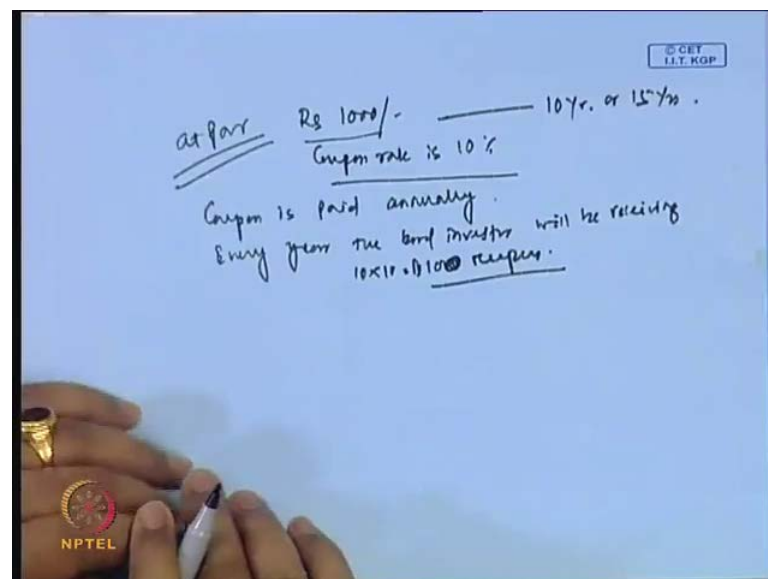 © CET
I.I.T. KGP
at Par Rs 1000/- 10 Yr. or 15 Yrs.
Coupon rate is 10%
Coupon is Paid annually.
Every year the bond investor will be receiving
10x10 100 rupees.
NPTEL